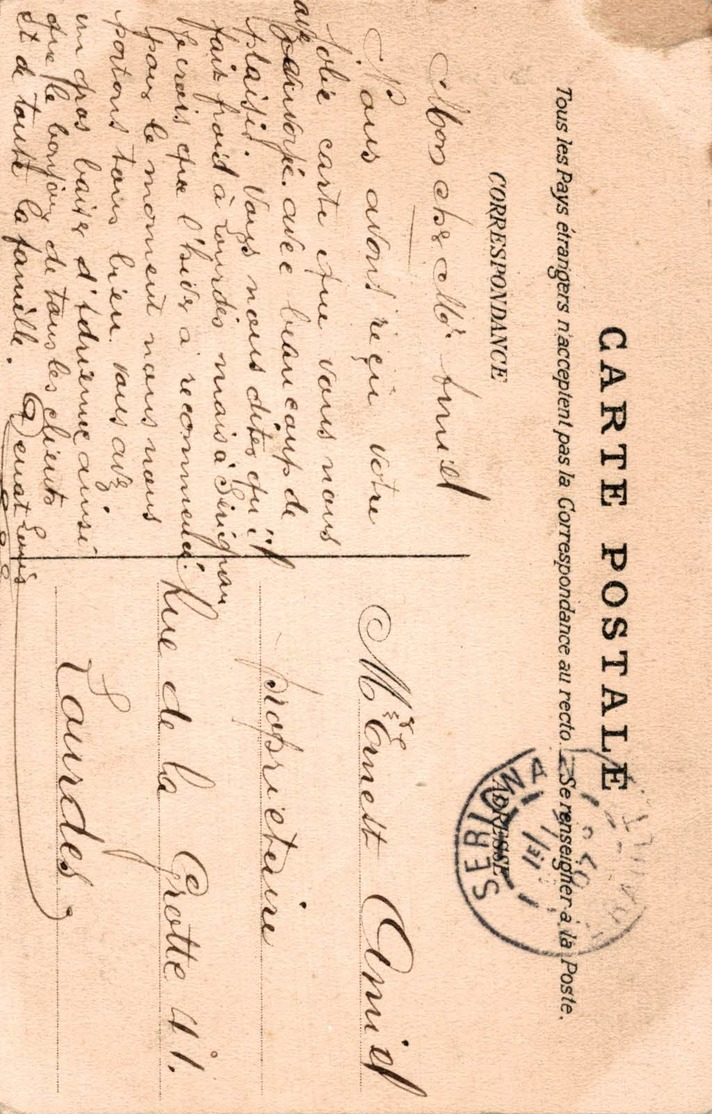 CARTE POSTALE
Tous les Pays étrangers n'acceptent pas la Correspondance au recto. — Se renseigner à la Poste.
CORRESPONDANCE
ADRESSE
SERIGNAN
Mon cher Mr Amiel
Nous avons reçu votre
jolie carte que vous nous
avez envoyé avec beaucoup de
plaisir. Vous nous dites qu'il
fait froid à Lourdes mais à Sérignan
je crois que l'hiver a recommencé
pour le moment nous nous
portons tous bien. Vous avez
un gros baiser d'Adrienne ainsi
que le bonjour de tous les clients
et de toute la famille.
Louis
Mr Ernest Amiel
propriétaire
Rue de la Grotte 41.
Lourdes